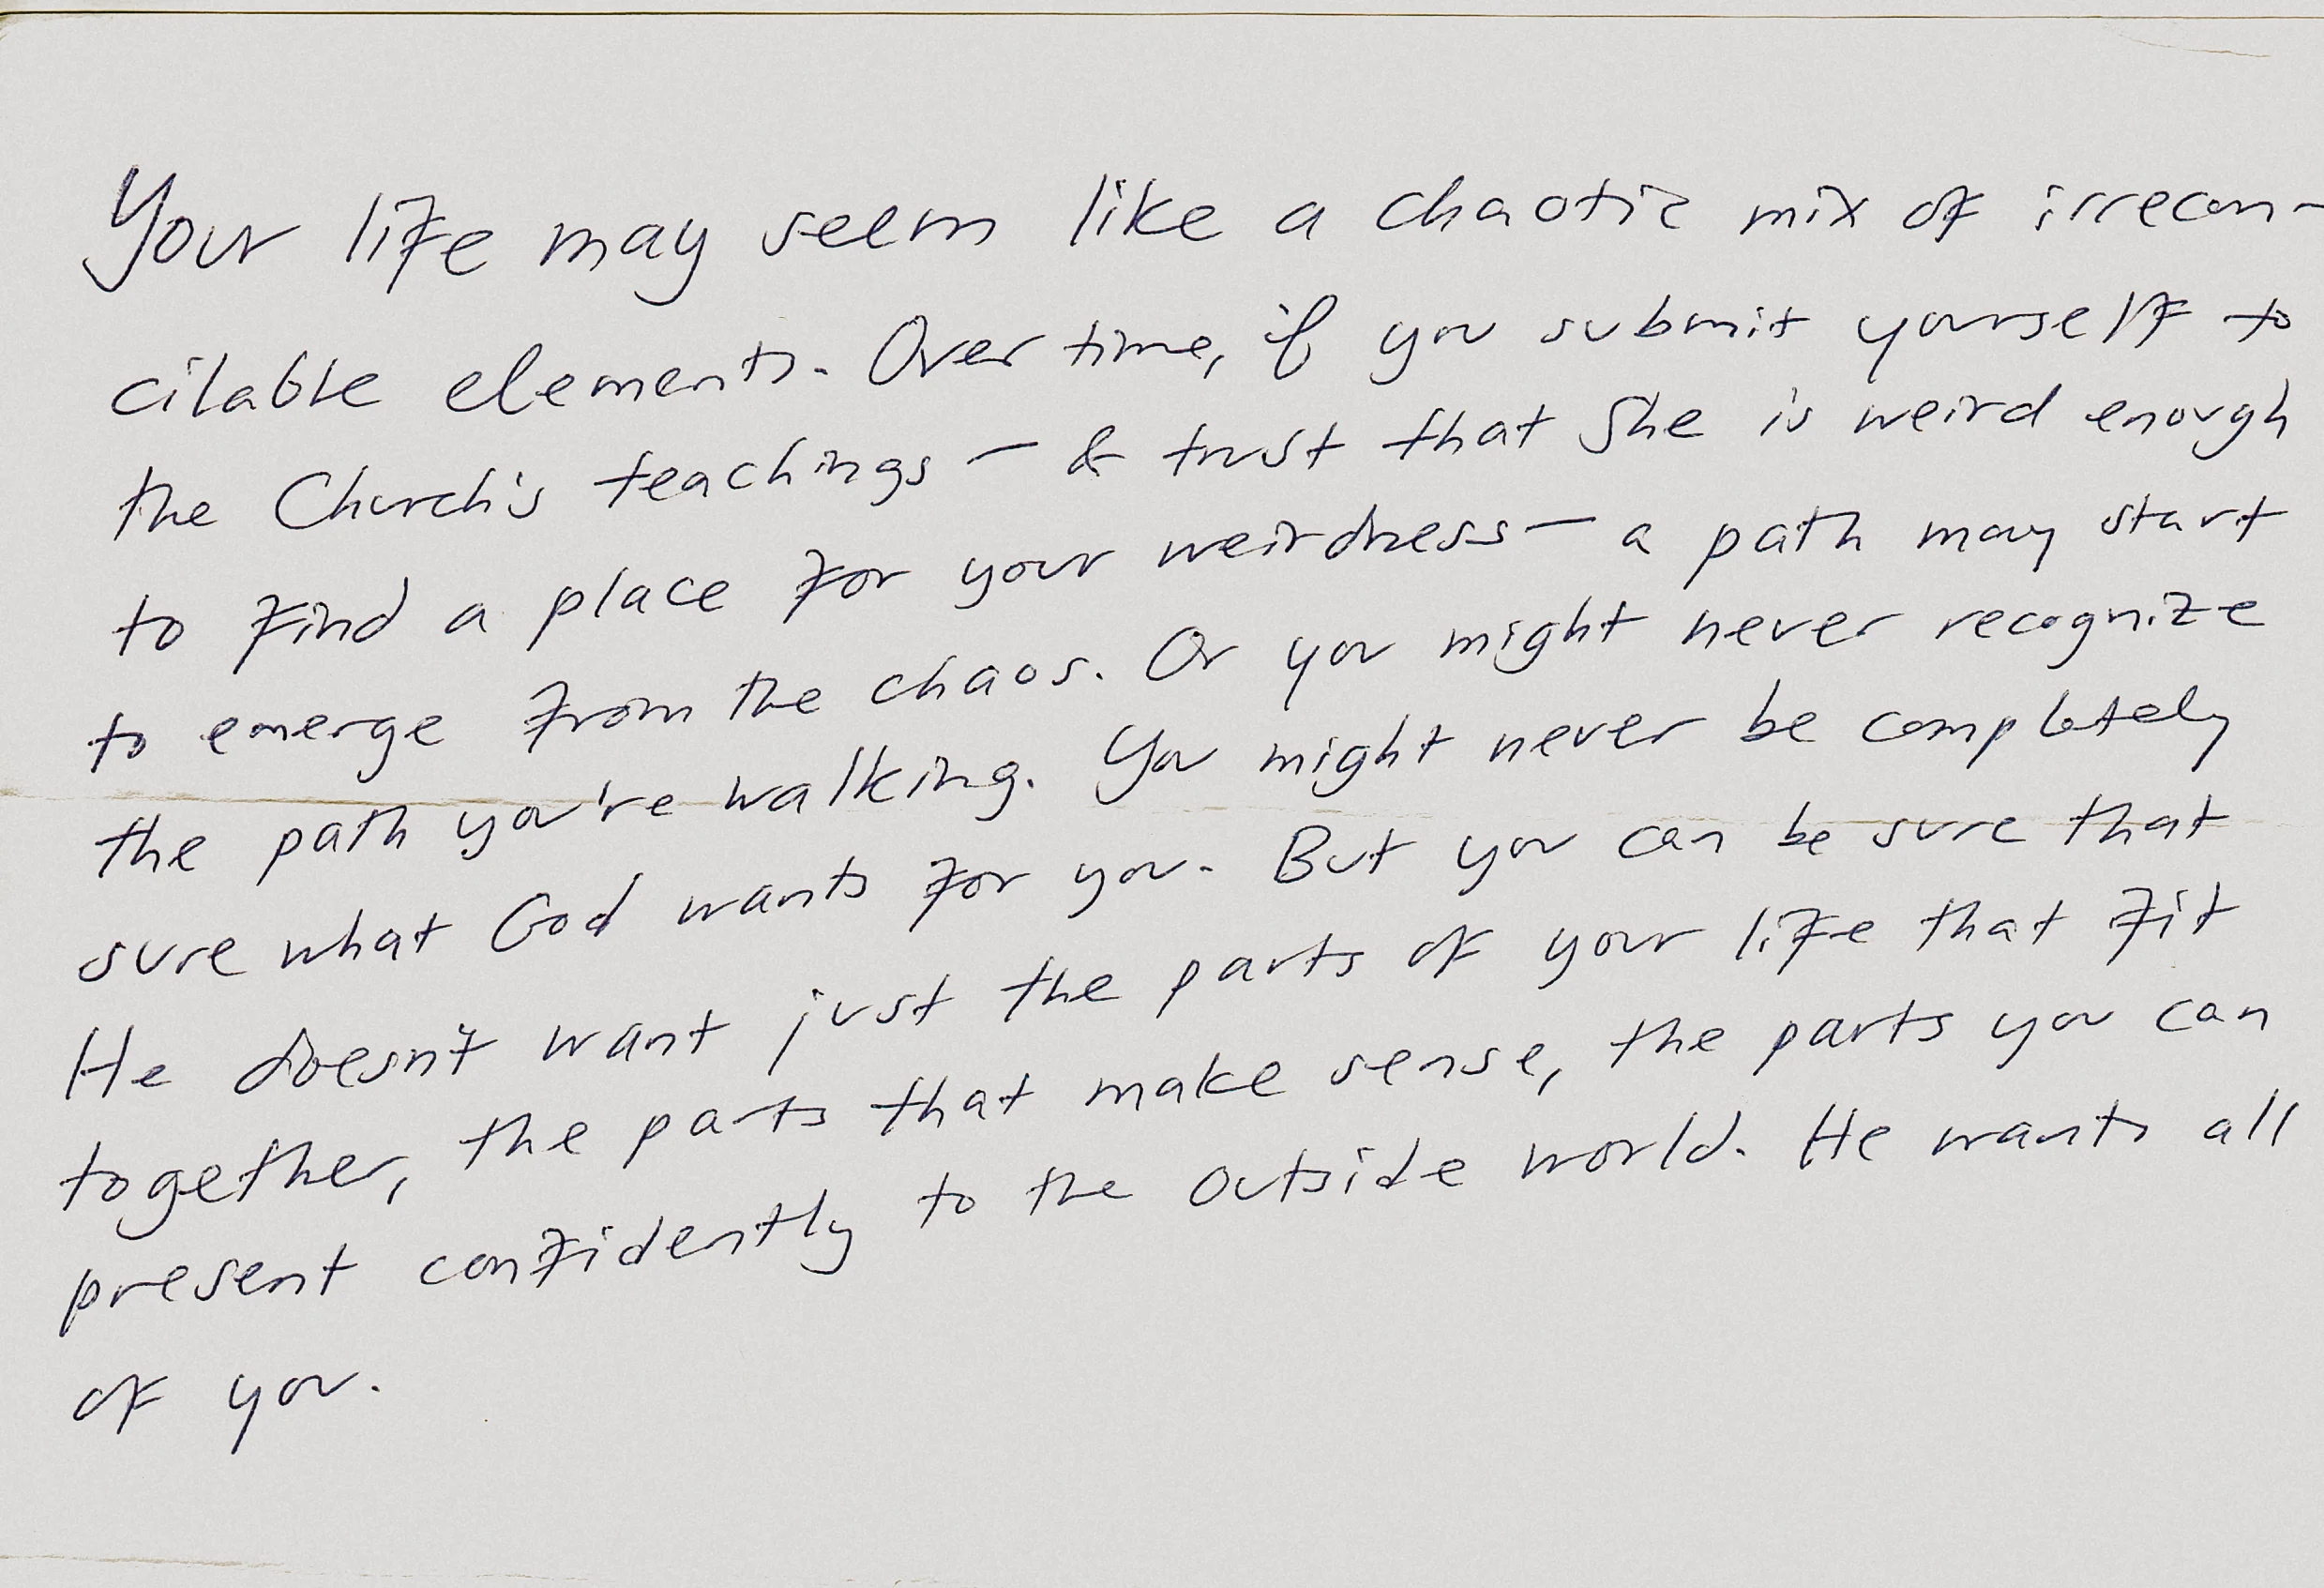 Your life may seem like a chaotic mix of irrecon-
cilable elements. Over time, if you submit yourself to
the Church's teachings — & trust that She is weird enough
to find a place for your weirdness — a path may start
to emerge from the chaos. Or you might never recognize
the path you're walking. You might never be completely
sure what God wants for you. But you can be sure that
He doesn't want just the parts of your life that fit
together, the parts that make sense, the parts you can
present confidently to the outside world. He wants all
of you.